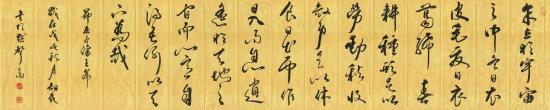 余立於宇宙
之中冬日衣
皮毛夏日衣
葛絺春
耕種形足以
勞動秋收
斂身足以休
食日出而作
日入而息逍
遙於天地之
間而心意自
得吾何以天
下為哉
節莊子讓王篇
歲在戊戌秋月